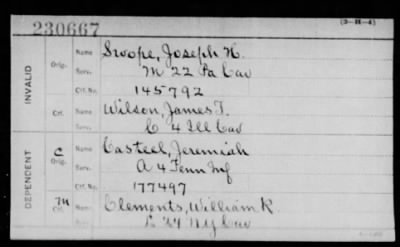 230667
(3-H-4)
INVALID
Orig.
Name
Swope, Joseph H.
Serv.
M 22 Pa Cav
Ctf. No.
145792
Ctf.
Name
Wilson, James T.
Serv.
C 4 Ill Cav
DEPENDENT
C
Orig.
Name
Casteel, Jeremiah
Serv.
A 4 Tenn Inf
Ctf. No.
177497
Ctf.
Name
Clements, William R.
Serv.
L 24 N.Y. Cav